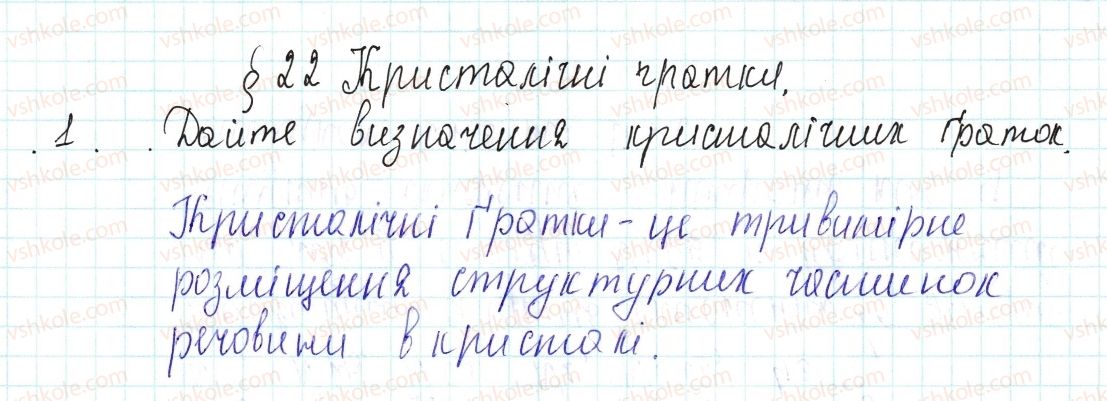 § 22 Кристалічні гратки.
1. Дайте визначення кристалічних ґраток.
Кристалічні ґратки - це тривимірне
розміщення структурних частинок
речовини в кристалі.